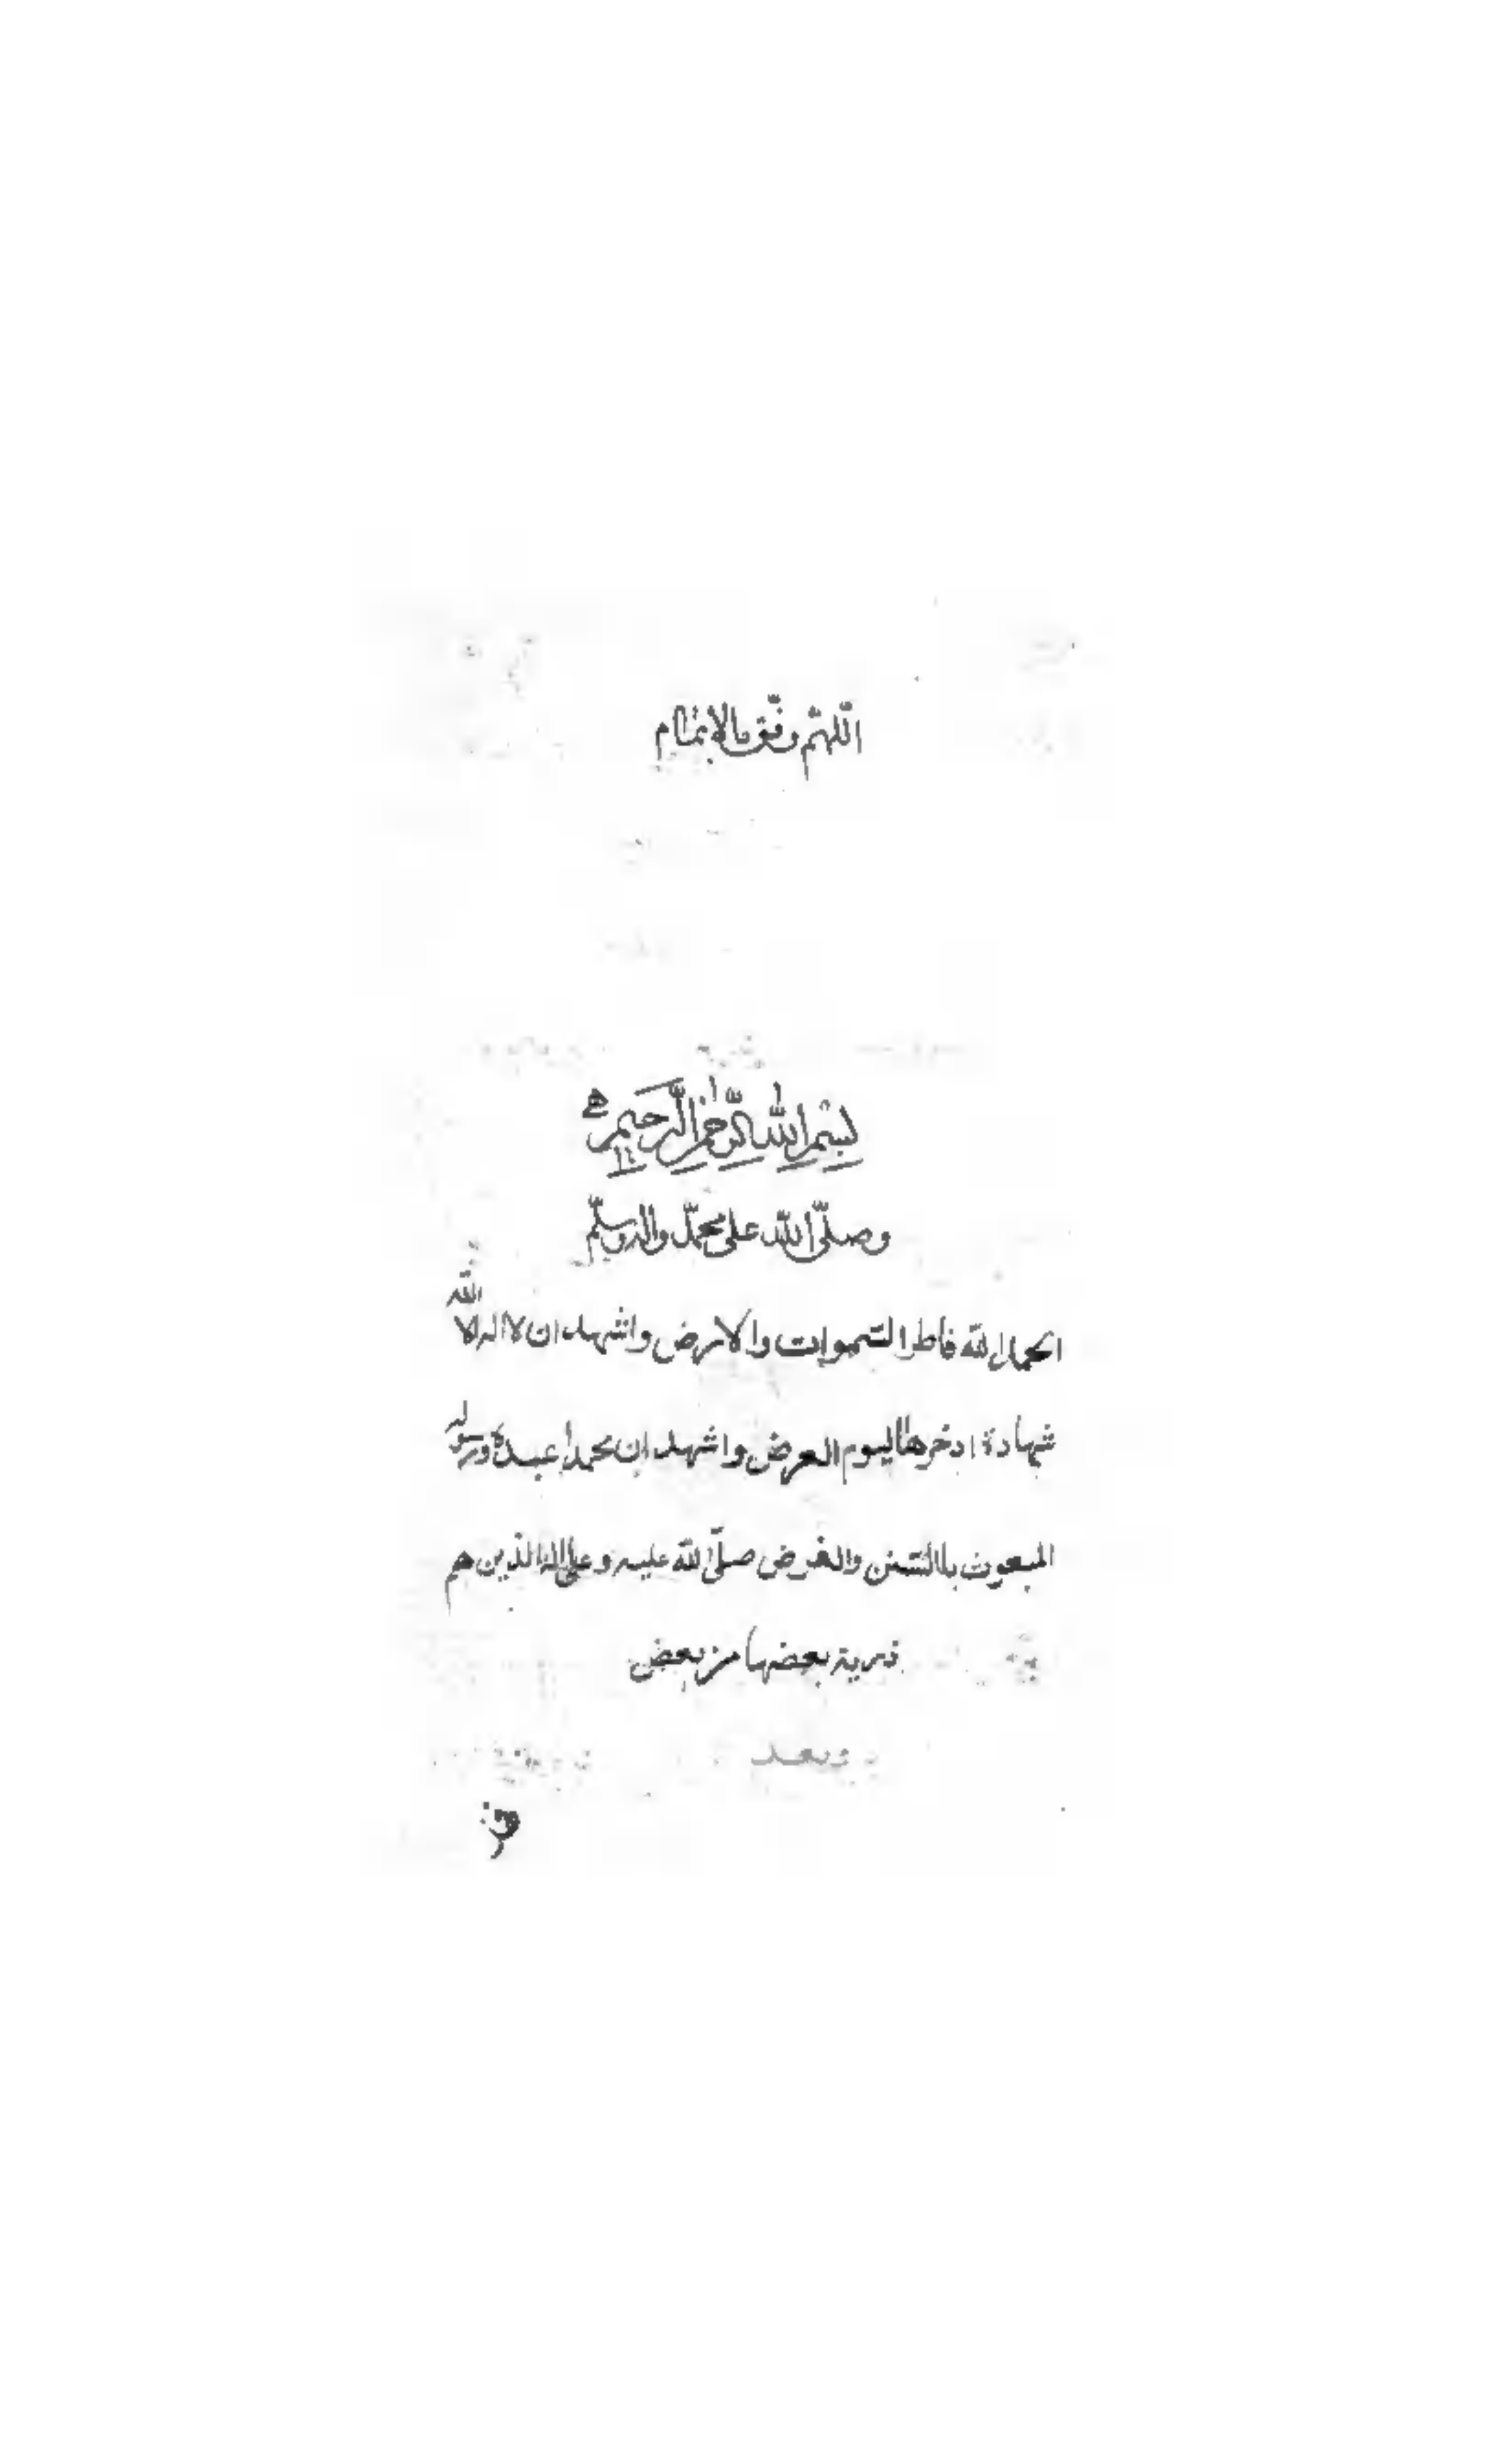 اللّهمّ وفّق بالاتمام
بسم الله الرّحمن الرّحيم
وصلّى الله على محمّد واله وسلّم
الحمد لله فاطر السّموات والارض واشهد ان لا اله الا الله
شهادة ادخرها ليوم العرض واشهد ان محمدا عبده ورسوله
المبعوث بالسّنن والفرض صلّى الله عليه وعلى اله الذين هم
ذرية بعضها من بعض
وبعد